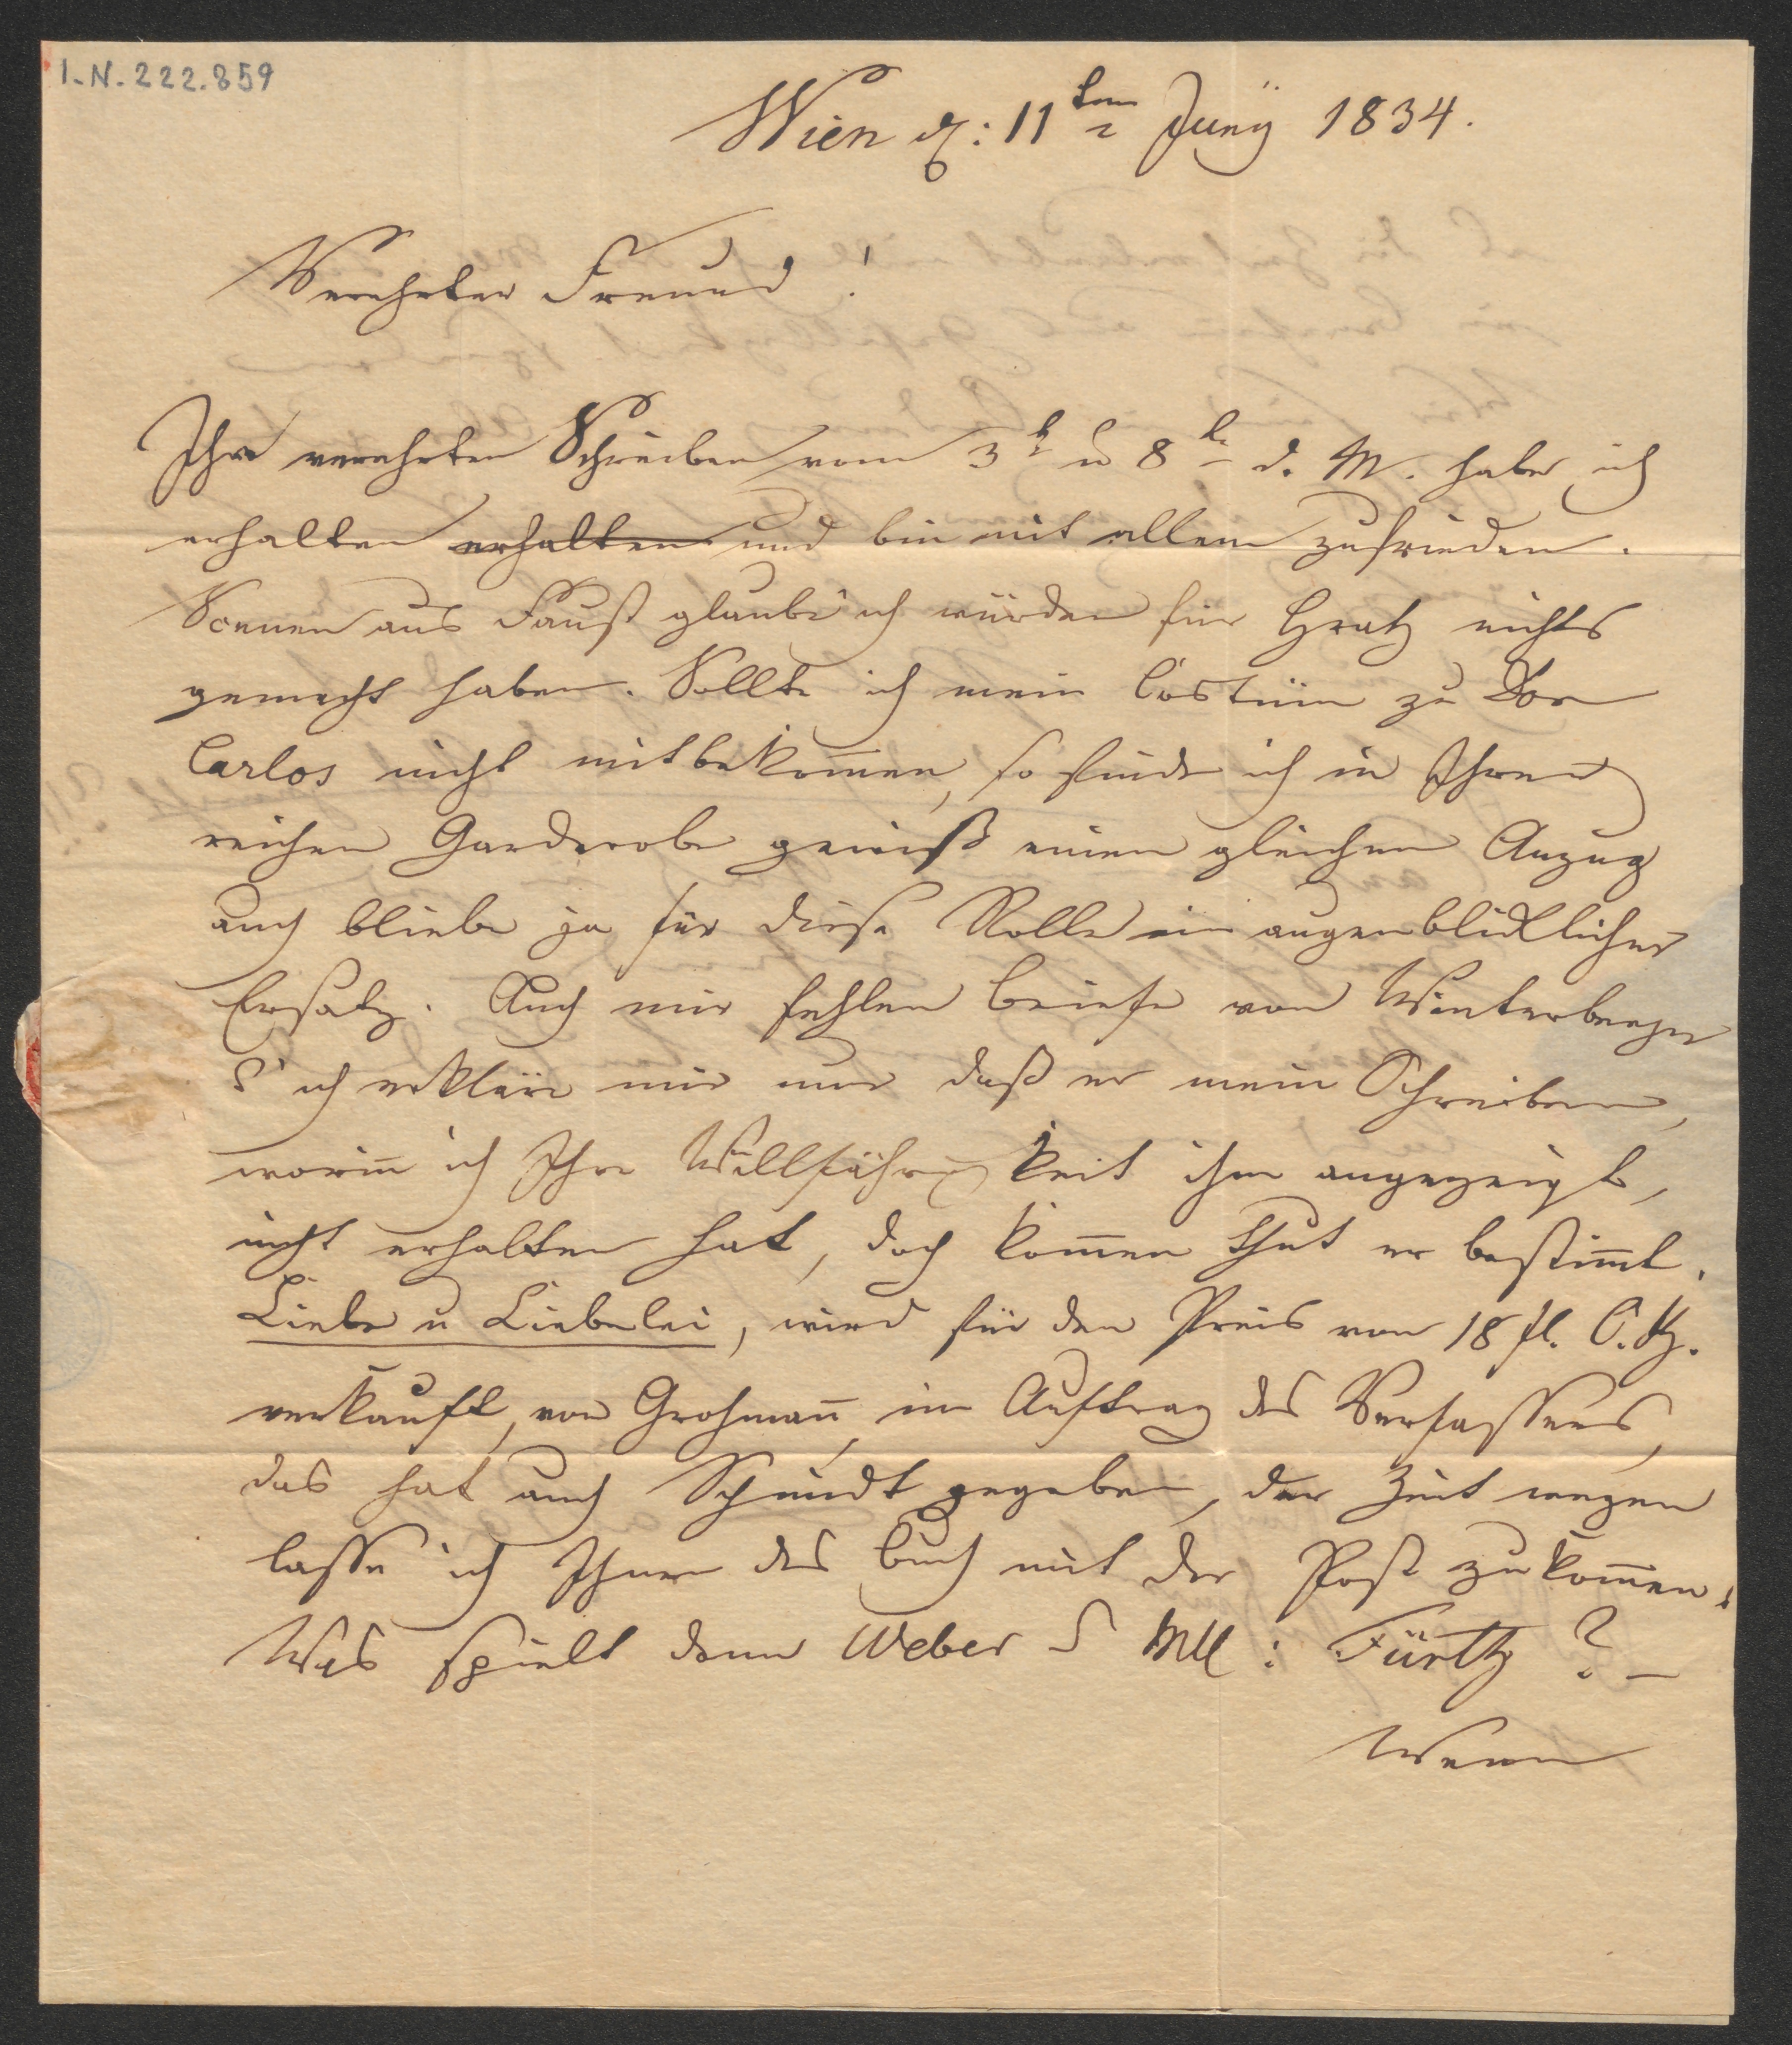 I.N. 222.859
Wien d: 11ten Juny 1834.
Verehrter Freund!
Ihre verehrten Schreiben vom 3t u 8t d. M. habe ich
erhalten erhalten und bin mit allem zufrieden.
Scenen aus Faust glaube ich würden für Gratz nichts
gemacht haben. Sollte ich mein Costüm zu Don
Carlos nicht mitbekommen, so finde ich in Ihrer
reichen Garderobe gewiß einen gleichen Anzug
auch bliebe ja für diese Rolle ein augenblicklicher
Ersatz. Auch mir fehlen Briefe von Winterberger
& ich erkläre mir nur daß er mein Schreiben,
worin ich Ihre Willfährigkeit ihm angezeigt,
nicht erhalten hat, doch kommen thut er bestimmt.
Liebe u Liebelei, wird für den Preis von 18 fl. C. M.
verkauft, von Grohmann, im Auftrag des Verfassers,
das hat auch Schmidt gegeben, der Zeit wegen
lasse ich Ihnen das Buch mit der Post zukommen.
Was spielt denn Weber & Mll: Fürth? –
Wenn